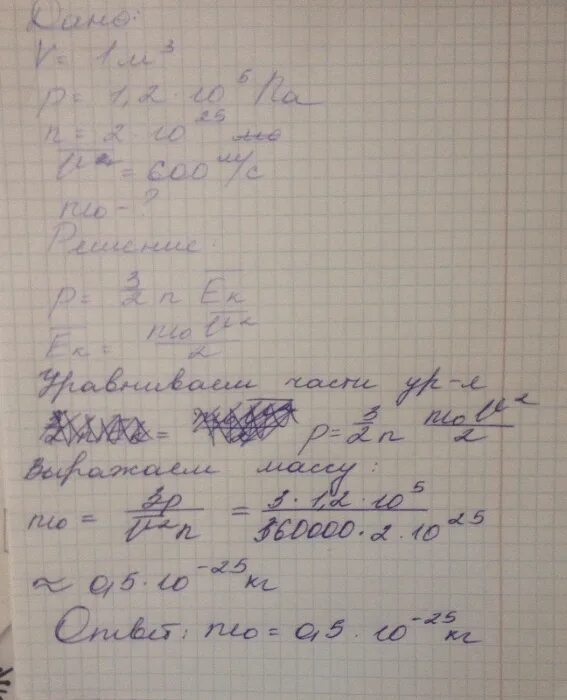 Дано:
V = 1 м³
p = 1,2 · 10⁵ Па
n = 2 · 10²⁵
v̅² = 600 м/с
m₀ - ?
Решение:
p = 3/2 n E̅ₖ
E̅ₖ = m₀v̅²/2
Уравниваем части ур-я
p = 3/2 n m₀v²/2
Выражаем массу:
m₀ = 3p/v̅²n = 3 · 1,2 · 10⁵/360000 · 2 · 10²⁵
≈ 0,5 · 10⁻²⁵ кг
Ответ: m₀ = 0,5 · 10⁻²⁵ кг